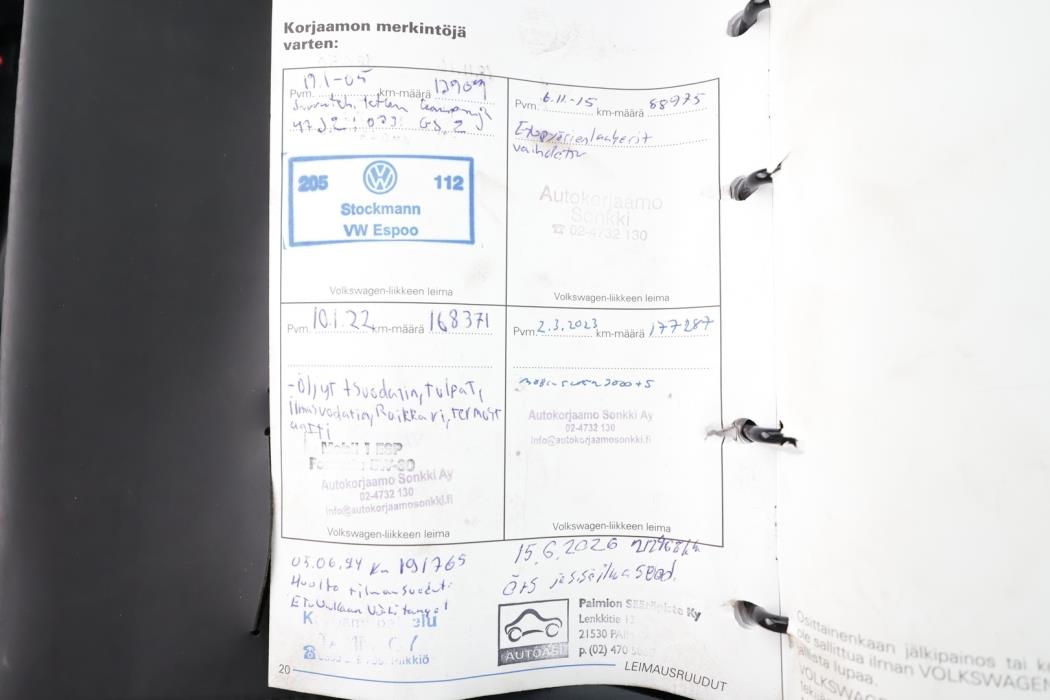 Korjaamon merkintöjä
varten:
Pvm. 19.1-05 km-määrä
GS. 2
205 112
Stockmann
VW Espoo
Volkswagen-liikkeen leima
Pvm. 6.11.-15 km-määrä 88975
vaihdettu
Autokorjaamo
Sonkki
☎ 02-4732 130
Volkswagen-liikkeen leima
Pvm. 10.1.22 km-määrä 168371
-Öljyt + suodatin, tulpat,
ilmasuodatin, Raikkari, termost
aatti
Mobil 1 ESP
Autokorjaamo Sonkki Ay
02-4732 130
info@autokorjaamosonkki.fi
Volkswagen-liikkeen leima
Pvm. 2.3.2023 km-määrä 177287
Autokorjaamo Sonkki Ay
02-4732 130
info@autokorjaamosonkki.fi
Volkswagen-liikkeen leima
05.06.24 Km 191765
Huolto + ilmansuodat.
15.6.2026
Ö+S ja sisäilmasuod.
AUTOASI
Palmion
Ky
Lenkkitie
21530
p. (02) 470
20 LEIMAUSRUUDUT
Osittainenkaan jälkipainos tai
ole sallittua ilman VOLKSWAGEN
lupaa.
VOLKSWAG